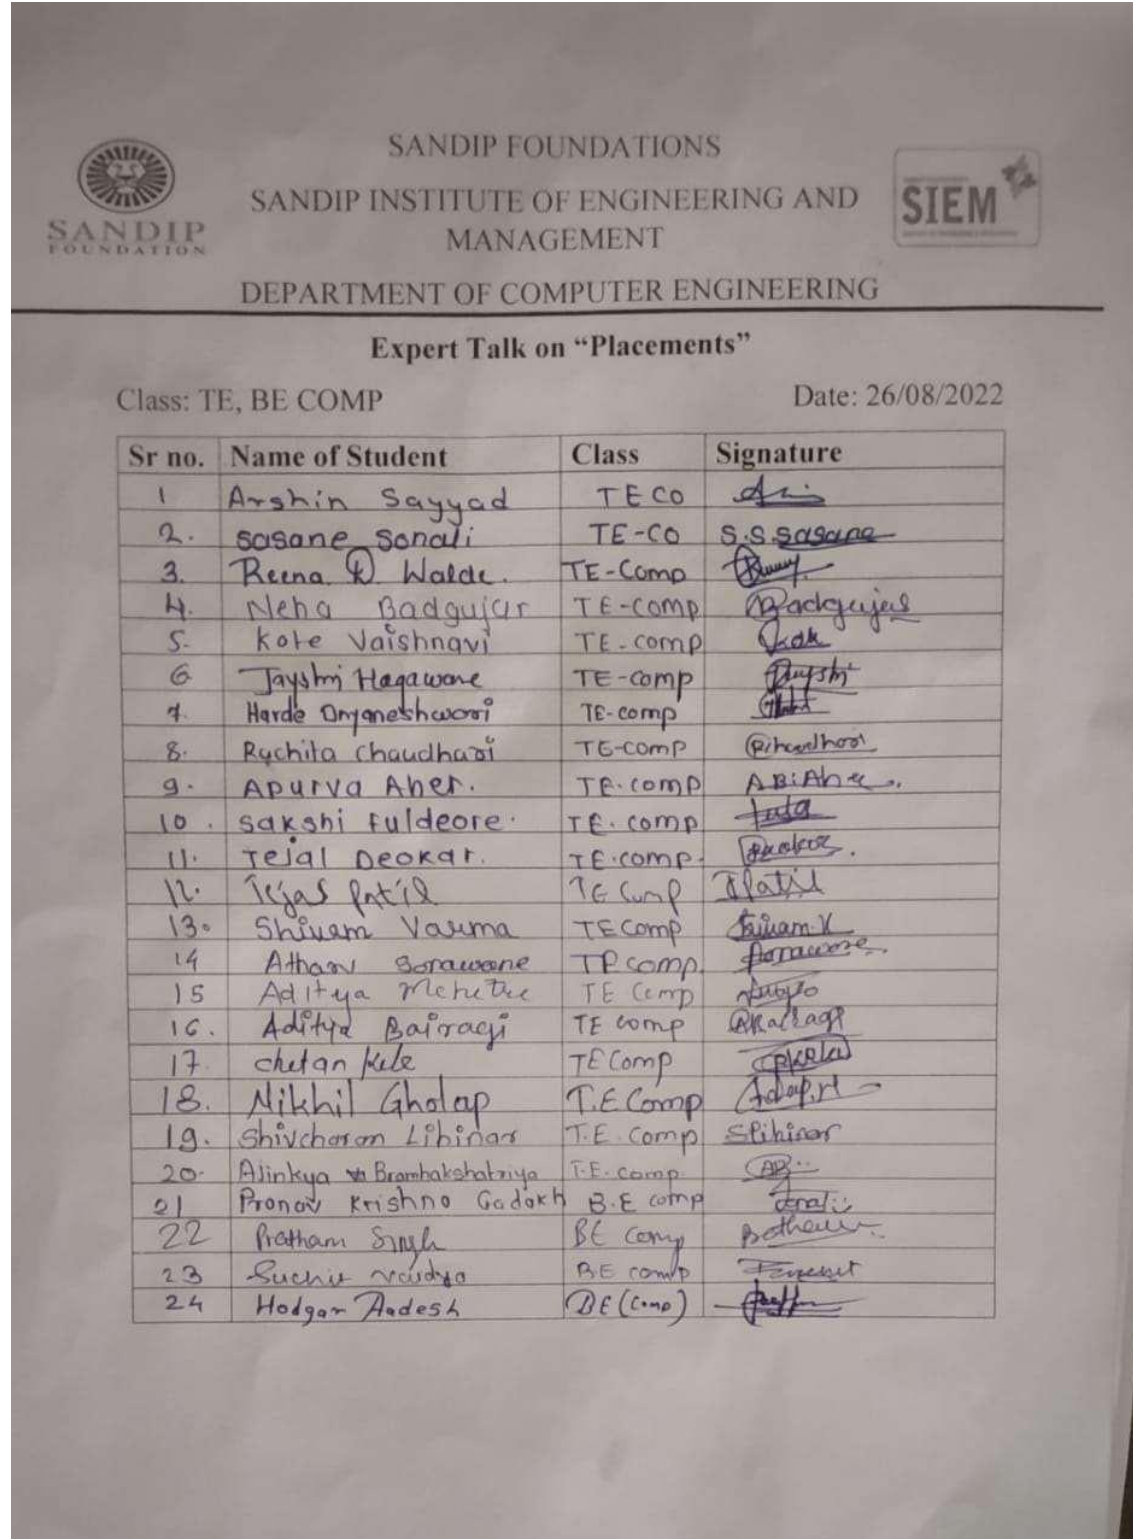 SANDIP FOUNDATION
SANDIP FOUNDATIONS
SANDIP INSTITUTE OF ENGINEERING AND
MANAGEMENT
SIEM
DEPARTMENT OF COMPUTER ENGINEERING
Expert Talk on “Placements”
Class: TE, BE COMP Date: 26/08/2022
Sr no. Name of Student Class Signature
1 Arshin Sayyad TECO
2. sasane sonali TE-CO S.S.sasane
3. Reena D. Walde. TE-Comp
4. Neha Badgujar TE-comp Badgujar
5. Kote Vaishnavi TE-comp
6 Jayshri Hagawane TE-comp
7. Harde Dnyaneshwari TE-comp
8. Ruchita Chaudhari TE-comp
9. Apurva Aher. TE.comp
10. sakshi Fuldeore. TE.comp
11. Tejal Deokar. TE.comp.
12. Tejas Patil TE Comp TPatil
13. Shivam Varma TE Comp Shivam.V
14 Atharv Sonawane TE comp. Sonawane
15 Aditya TE Comp
16. Aditya Bairagi TE comp
17. chetan Kele TE Comp
18. Nikhil Gholap T.E Comp
19. Shivcharan Lihinar T.E. Comp SLihinar
20. Ajinkya Bramhakshatriya T.E. comp.
21 Pranav Krishna Gadakh B.E comp
22 Pratham Singh BE Comp
23 Suchit Vaidya BE comp
24 Hodgar Aadesh BE (Comp)